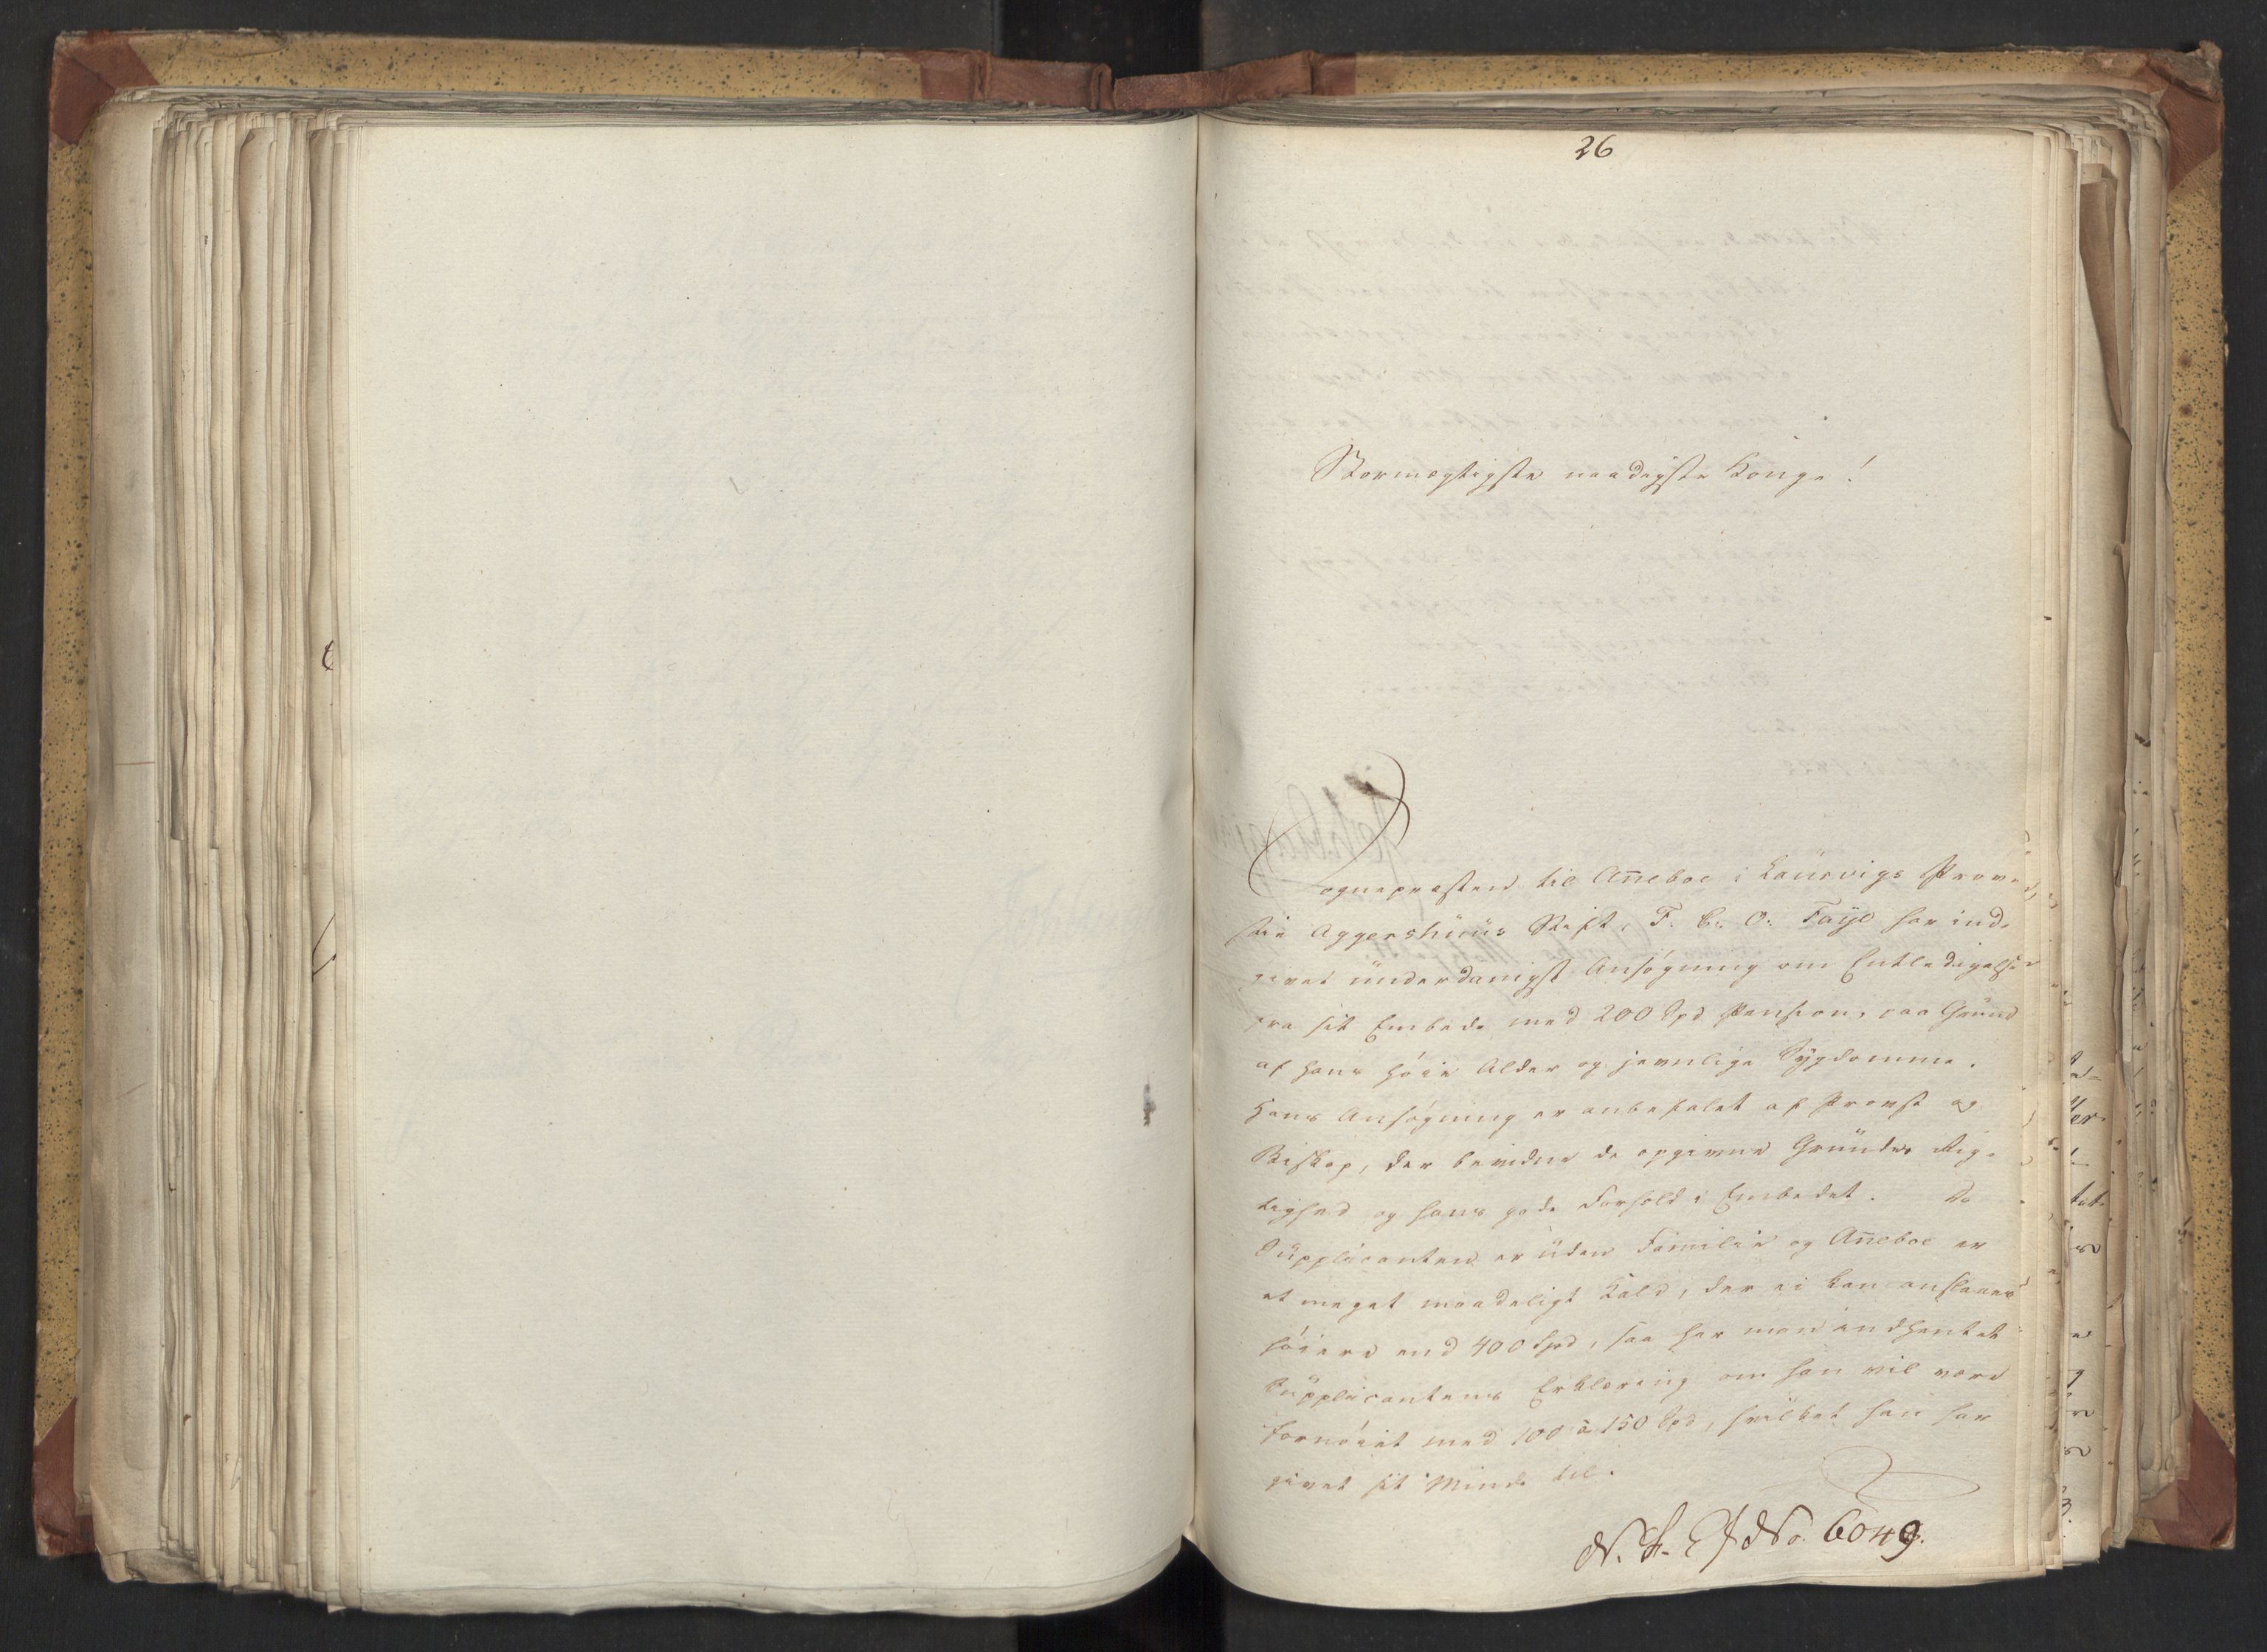 26
Stormægtigste naadigste Konge!
Sognepræsten til Añeboe i Laurvigs Prov-
stie Aggershuus Stift, F. C. O. Faÿe har ind-
givet underdanigst Ansøgning om Entledigelse
fra sit Embede med 200 Spd Pension, paa Grund
af hans høie Alder og jevnlige Sÿgdomme.
Hans Ansøgning er anbefalet af Provst og
Biskop, der bevidne de opgivne Grundes Rig-
tighed og hans gode Forhold i Embedet. Da
Supplicanten er uden Familie og Añeboe er
et meget maadeligt Kald, der ei kan anslaaes
høiere end 400 Spd, saa har man indhentet
Supplicantens Erklæring om han vil være
fornøiet med 100 à 150 Spd, hvilket han har
givet sit Minde til.
No. 6049.